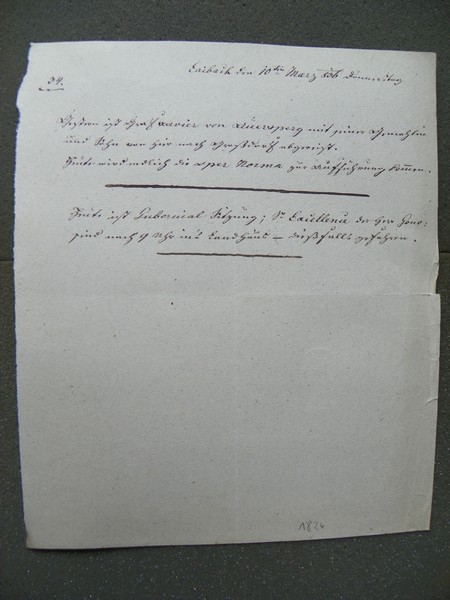 34.
Laibach den 10ten März Donnerstag
Gestern ist Graf Xavier von Auersperg mit seiner Gemahlin
und Sohn von hier nach abgereist.
Heute wird endlich die Oper Norma zur Aufführung kommen.
Heute ist Gubernial Sitzung; Sr Excellenz der Herr Gou=
nach 9 Uhr ins Landhaus gefahren.